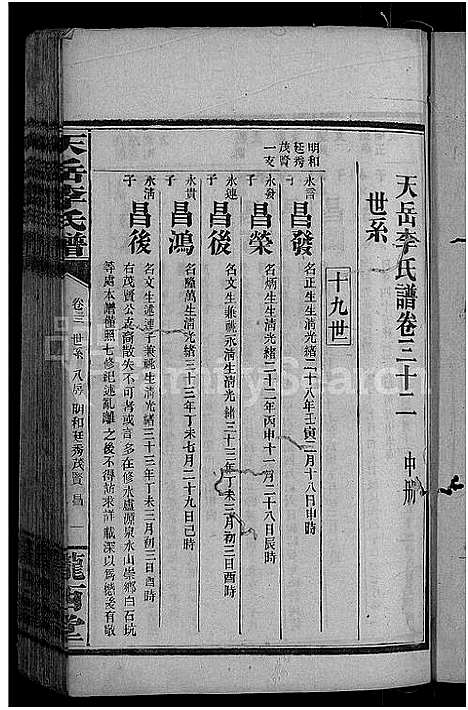 天岳李氏譜卷三十二　中册
世系
十九世
明和
廷秀
茂賢
一支
永言子
昌發
名正生生清光緒二十八年壬寅二月十八日申時
永發子
昌榮
名炳生生清光緒二十二年丙申十一月二十八日辰時
永連子
昌後
名文生兼祧永清生清光緒三十三年丁未三月初三日酉時
永貴子
昌鴻
名隆萬生生清光緒三十三年丁未七月二十九日己時
永清子
昌後
名文生述連子兼祧生清光緒三十三年丁未三月初三日酉時
右茂賢公袁裔散失不可考或言多在修水盧源泉水山崇鄉白石坑
等處本譜僅照七修紀述亂離之後不得訪來詳載深以為憾後有敬
天岳李氏譜
卷三十二　世系　八房　明和廷秀茂賢　昌　一
隴西堂
FamilySearch